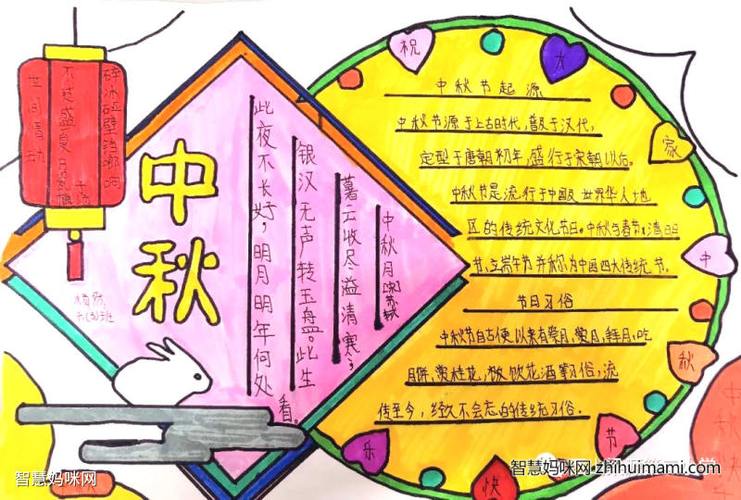 世间情动
不过盛夏
碎冰碰壁铛啷响
中秋
中秋月
暮云收尽溢清寒,
银汉无声转玉盘。此生
此夜不长好,明月明年何处
看。
祝
大
家
中
秋
节
快
乐
中秋节起源
中秋节源于上古时代,普及于汉代,
定型于唐朝初年,盛行于宋朝以后。
中秋节是流行于中国及世界华人地
区的传统文化节日。中秋与春节、清明
节、端午节并称为中国四大传统节。
节日习俗
中秋节自古便以来有 月,赏月,拜月,吃
月饼,赏桂花, 饮 花酒等习俗,流
传至今,经久不会忘的传统习俗.
智慧妈咪网
智慧妈咪网 zhihuimami.com